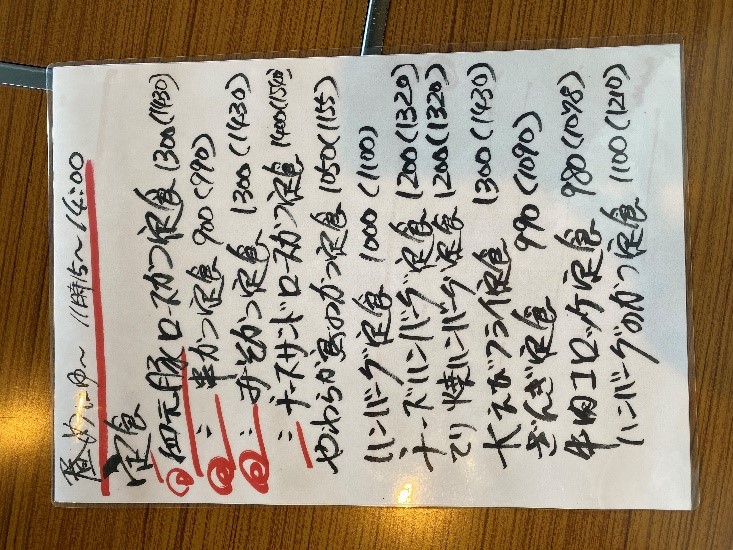 昼めにゅ〜 11時15〜14:00
定食
① 四元豚ロースかつ定食 1300(1430)
② 〃 串かつ定食 900(990)
③ 〃 みそかつ定食 1300(1430)
〃 チーズサンドロースかつ定食 1400(1540)
やわらか鶏のかつ定食 1050(1155)
ハンバーグ定食 1000(1100)
チーズハンバーグ定食 1200(1320)
てり焼ハンバーグ定食 1200(1320)
大えびフライ定食 1300(1430)
ざんぎ定食 990(1090)
牛肉コロッケ定食 980(1078)
ハンバーグのかつ定食 1100(1210)